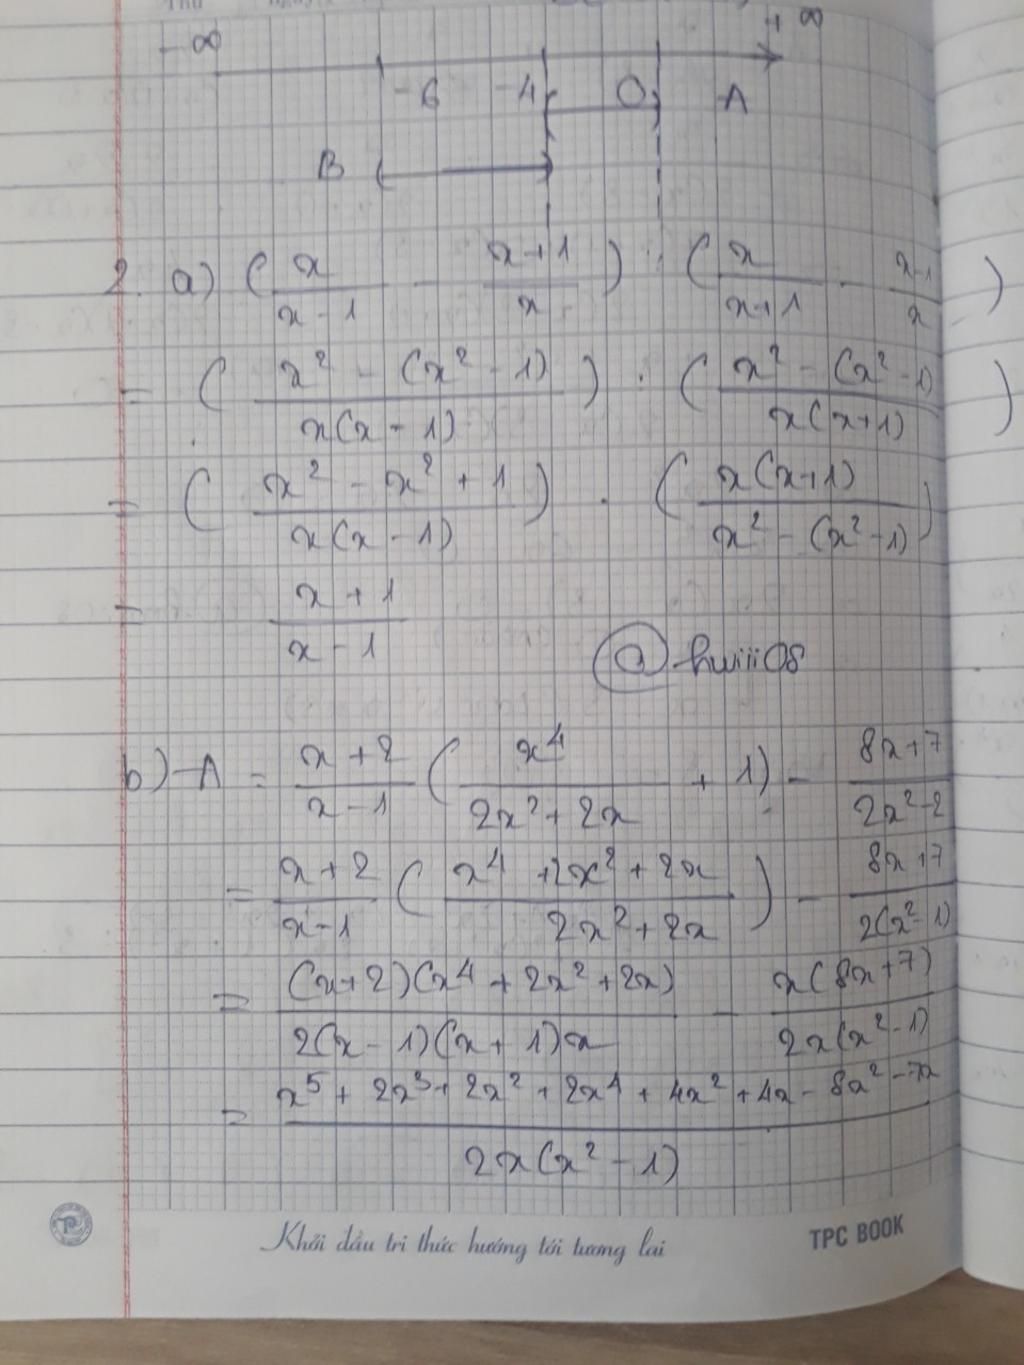 -∞ +∞
-6 -4 0 A
B
2. a) ( x/(x-1) - (x+1)/x ) : ( x/(x+1) - (x-1)/x )
= ( (x² - (x² - 1))/(x(x-1)) ) : ( (x² - (x² - 1))/(x(x+1)) )
= ( (x² - x² + 1)/(x(x-1)) ) . ( (x(x+1))/(x² - (x² - 1)) )
= (x+1)/(x-1)
@ huiii08
b) A = (x+2)/(x-1) ( x⁴/(2x² + 2x) + 1) - (8x+7)/(2x² - 2)
= (x+2)/(x-1) ( (x⁴ + 2x² + 2x)/(2x² + 2x) ) - (8x+7)/(2(x² - 1))
= ((x+2)(x⁴ + 2x² + 2x))/(2(x-1)(x+1)x) - (x(8x+7))/(2x(x² - 1))
= (x⁵ + 2x³ + 2x² + 2x⁴ + 4x² + 4x - 8x² - 7x)/(2x(x² - 1))
Khởi đầu tri thức hướng tới tương lai TPC BOOK